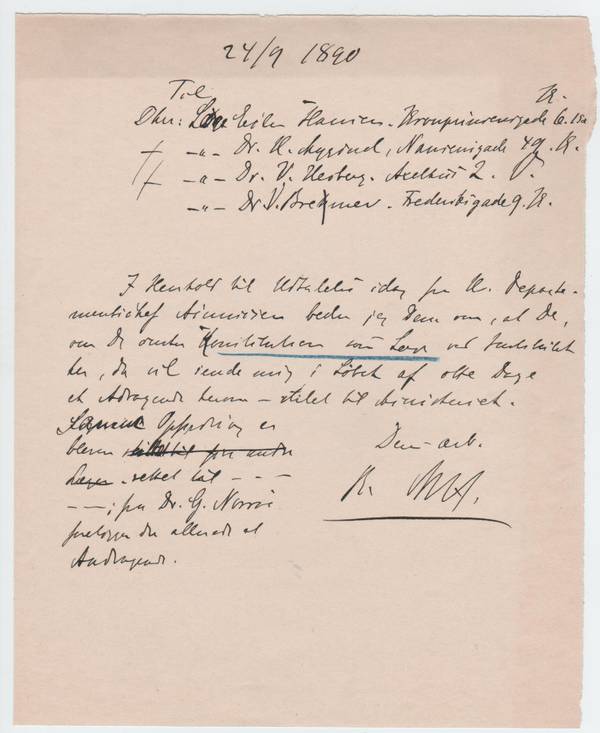 24/9 1890
Til K.
Dhrr: Læge Ejler Hansen. Kronprinsensgade 6.
—"— Dr. H. Mygind, Nansensgade 49. K.
—"— Dr. V. Uchermann. Axelhus 2. V.
—"— Dr V. Bremer. Frederiksgade 9. K.
I Henhold til Udtalelse idag fra Hr. Departe-
mentschef beder jeg Dem om, at De,
om De ønsker Konstitution som Læge ved Instituttet
her, da vil sende mig i Löbet af otte Dage
et Andragende herom – stilet til Ministeriet.
Samme Opfordring er
bleven stillet til fire andre
Læger – rettet til – – –
– –; fra Dr. G. Norrie
foreligger der allerede et
Andragende.
Dem – ærb.